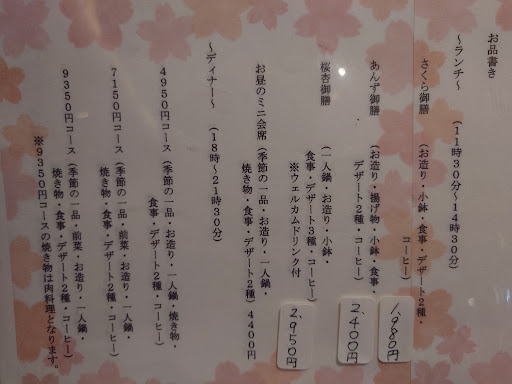 お品書き
～ランチ～　（１１時３０分～１４時３０分）
さくら御膳　（お造り・小鉢・食事・デザート２種・
コーヒー）
１,９８０円
あんず御膳　（お造り・揚げ物・小鉢・食事・
デザート２種・コーヒー）
２,４００円
桜杏御膳　（一人鍋・お造り・小鉢・
食事・デザート３種・コーヒー）
※ウェルカムドリンク付
２,９５０円
お昼のミニ会席（季節の一品・お造り・一人鍋・
焼き物・食事・デザート２種）４４００円
～ディナー～　（１８時～２１時３０分）
４９５０円コース（季節の一品・お造り・一人鍋・焼き物・
食事・デザート２種・コーヒー）
７１５０円コース（季節の一品・前菜・お造り・一人鍋・
焼き物・食事・デザート２種・コーヒー）
９３５０円コース（季節の一品・前菜・お造り・一人鍋・
焼き物・食事・デザート２種・コーヒー）
※９３５０円コースの焼き物は肉料理となります。